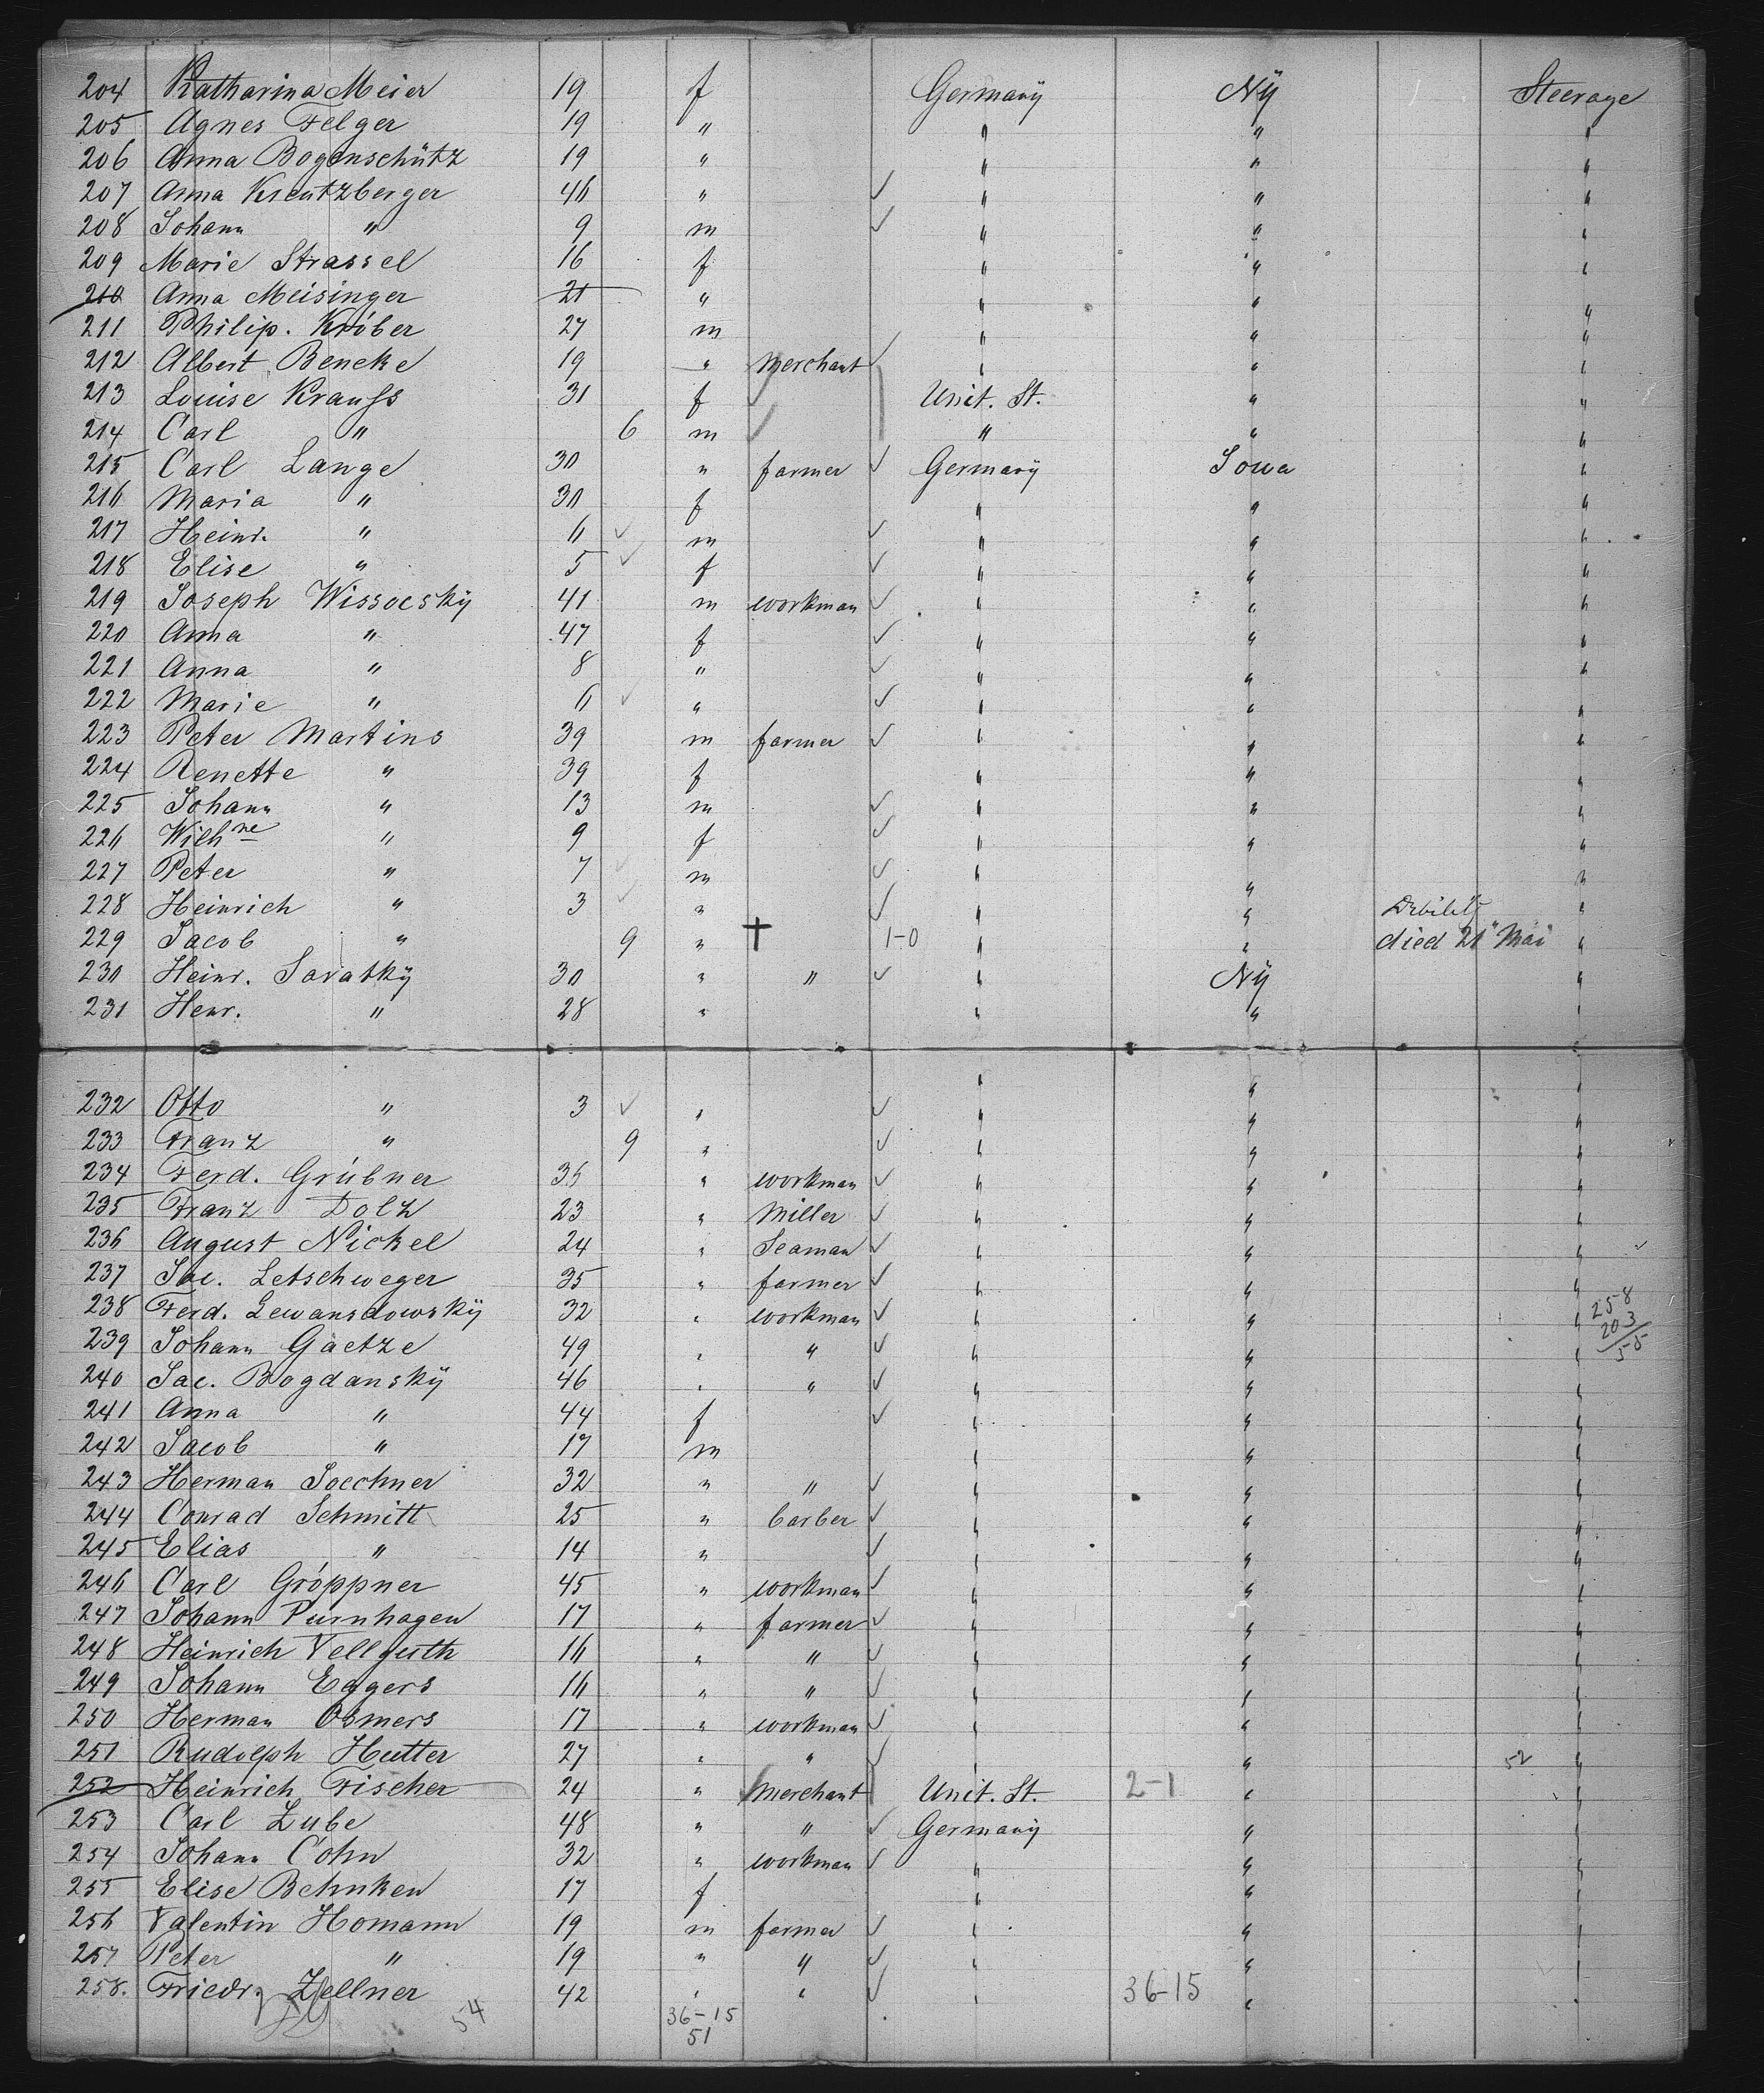 204 Katharina Meier 19 f Germany Ny Steerage
205 Agnes Felger 19 " " " "
206 Anna Bogenschütz 19 " " " "
207 Anna Kreutzberger 46 " ✓ " " "
208 Johann " 9 m ✓ " " "
209 Marie Strassel 16 f " " "
210 Anna Meisinger 21 " " " "
211 Philip. Kröber 27 m " " "
212 Albert Beneke 19 " Merchant ✓ " " "
213 Louise Krauss 31 f ✓ Unit. St. " "
214 Carl " 6 m ✓ " " "
215 Carl Lange 30 " farmer ✓ Germany Iowa "
216 Maria " 30 f " " "
217 Heinr. " 6 ✓ m ✓ " " "
218 Elise " 5 ✓ f ✓ " " "
219 Joseph Wissocsky 41 m workman ✓ " " "
220 Anna " 47 f ✓ " " "
221 Anna " 8 " ✓ " " "
222 Marie " 6 ✓ " ✓ " " "
223 Peter Martins 39 m farmer ✓ " " "
224 Renette " 39 f " " "
225 Johann " 13 m ✓ " " "
226 Wilhne " 9 f ✓ " " "
227 Peter " 7 ✓ m ✓ " " "
228 Heinrich " 3 ✓ " ✓ " " Debility "
229 Jacob " 9 " † 1-0 " " died 21" Mai "
230 Heinr. Savatky 30 " " ✓ " Ny "
231 Henr. " 28 " " " "
232 Otto " 3 ✓ " ✓ " " "
233 Franz " 9 " ✓ " " "
234 Ferd. Grübner 35 " workman ✓ " " "
235 Franz Dolz 23 " Miller ✓ " " "
236 August Nickel 24 " Seaman ✓ " " "
237 Jac. Letschweger 35 " farmer ✓ " " "
238 Ferd. Lewansdowsky 32 " workman ✓ " " " 258
239 Johann Gaetze 49 " " ✓ " " " 203
55
240 Jac. Bogdansky 46 " " ✓ " " "
241 Anna " 44 f ✓ " " "
242 Jacob " 17 m " " "
243 Herman Joechner 32 " " ✓ " " "
244 Conrad Schmitt 25 " barber ✓ " " "
245 Elias " 14 " ✓ " " "
246 Carl Gröppner 45 " workman ✓ " " "
247 Johann Purnhagen 17 " farmer ✓ " " "
248 Heinrich Vellguth 16 " " ✓ " " "
249 Johann Eggers 16 " " ✓ " " "
250 Herman Osmers 17 " workman ✓ " " "
251 Rudolph Hutter 27 " " ✓ " " 52 "
252 Heinrich Fischer 24 " Merchant Unit. St. 2-1 " "
253 Carl Zube 48 " " ✓ Germany " "
254 Johann Cohn 32 " workman ✓ " " "
255 Elise Behnken 17 f " " "
256 Valentin Homann 19 m farmer ✓ " " "
257 Peter " 19 " " ✓ " " "
258. Friedr. Zellner 42 " " ✓ " 36-15 "
54 36-15
51